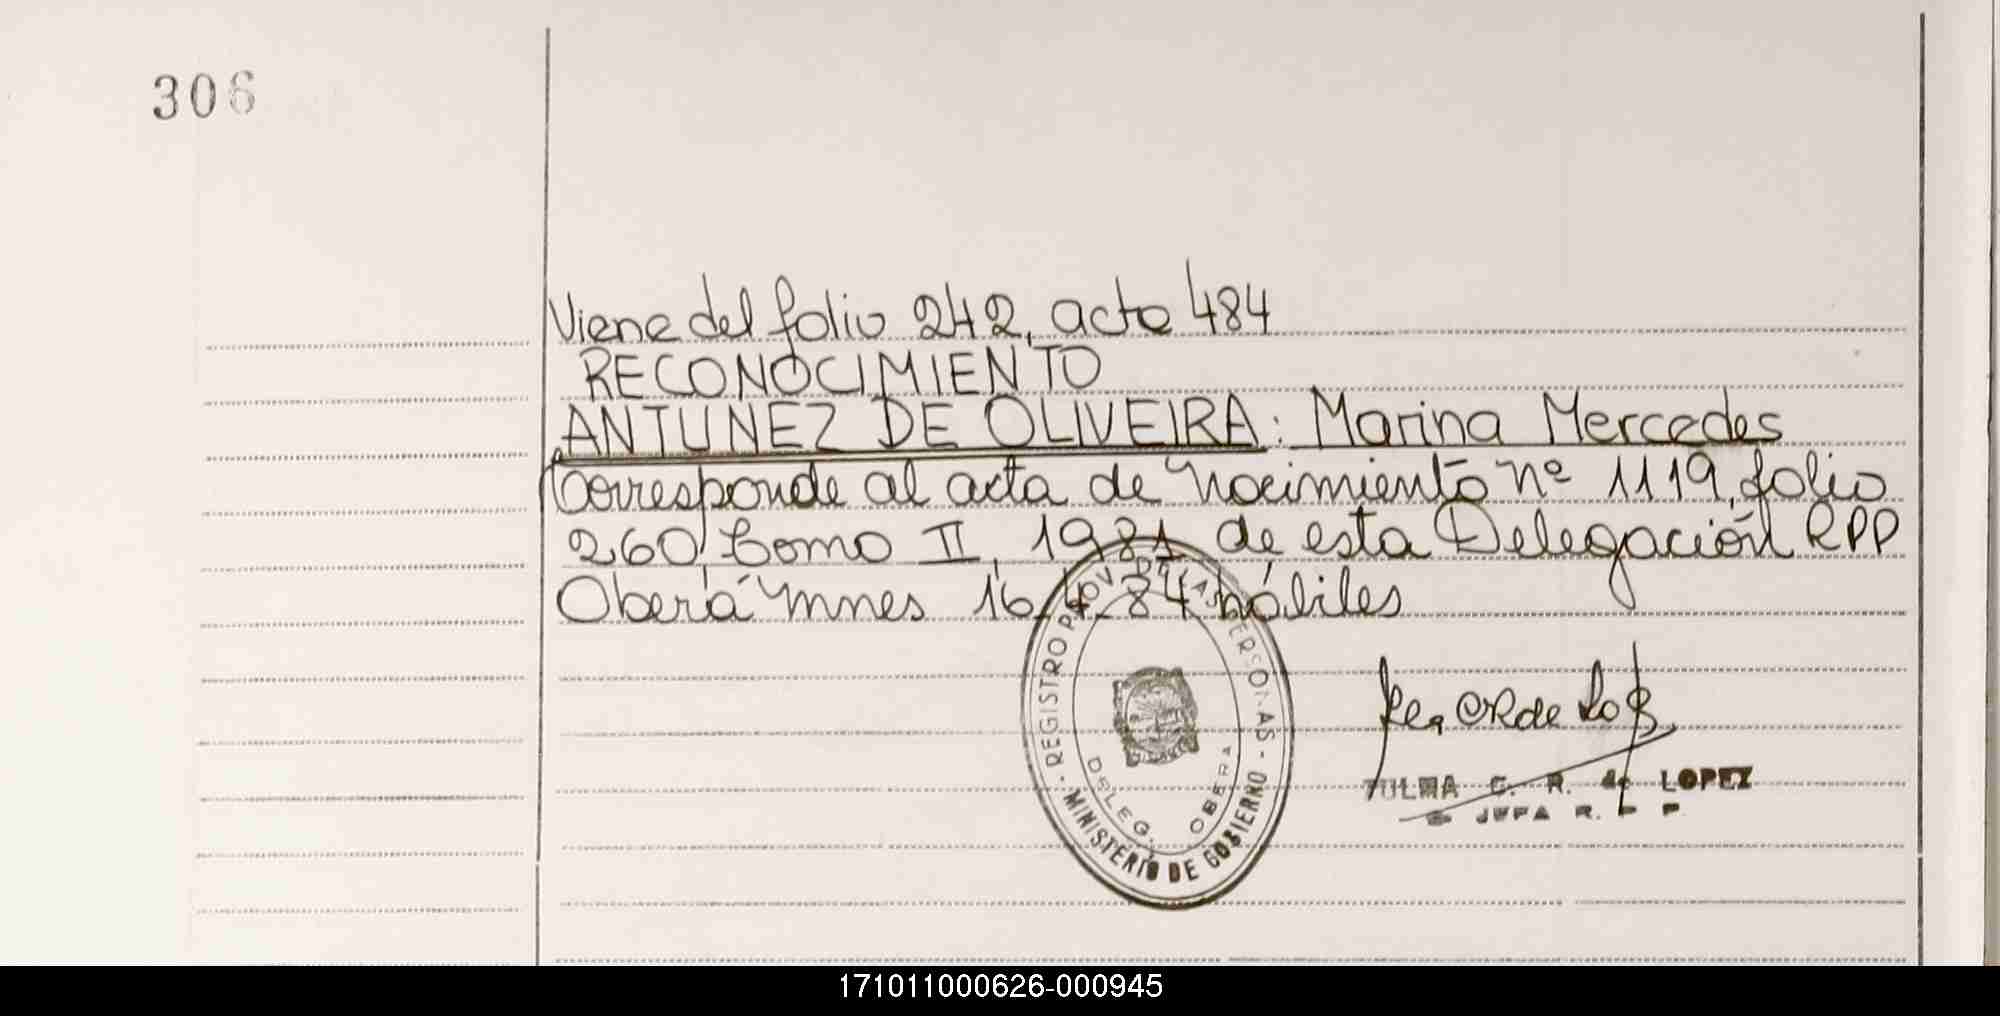 306
Viene del folio 242, acta 484
RECONOCIMIENTO
ANTUNEZ DE OLIVEIRA: Marina Mercedes
Corresponde al acta de nacimiento nº 1119, folio
260 tomo II, 1981 de esta Delegación RPP
Oberá Mnes 16-4-84 hábiles
REGISTRO PROV. DE LAS PERSONAS - MINISTERIO DE GOBIERNO -
DELEG. OBERA
C. R. de LOPEZ
JEFA R. P P
171011000626-000945